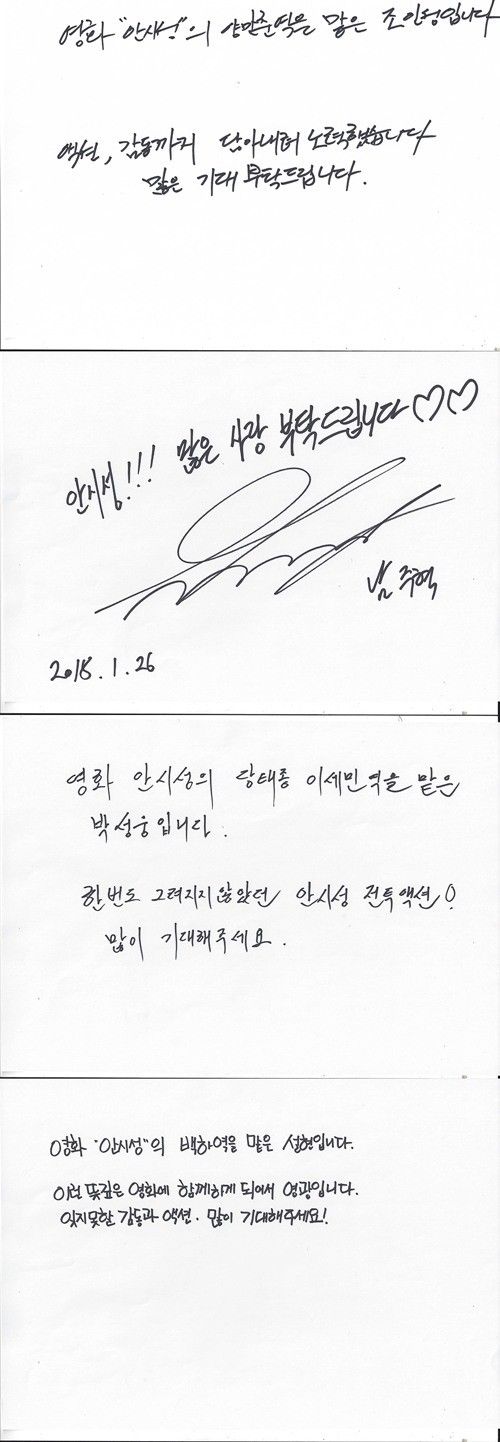 영화 "안시성"의 양만춘역을 맡은 조인성입니다
액션, 감동까지 담아내려 노력했습니다
많은 기대 부탁드립니다.
안시성!!! 많은 사랑 부탁드립니다♡♡
남주혁
2018.1.26
영화 안시성의 당태종 이세민역을 맡은
박성웅입니다.
한번도 그려지지않았던 안시성 전투액션!
많이 기대해주세요.
영화 "안시성"의 백하역을 맡은 설현입니다.
이런 뜻깊은 영화에 함께하게 되어서 영광입니다.
잊지못할 감동과 액션. 많이 기대해주세요!